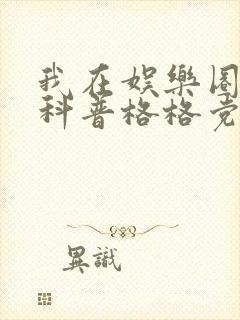 我在娱樂圈
科普格格党
異識